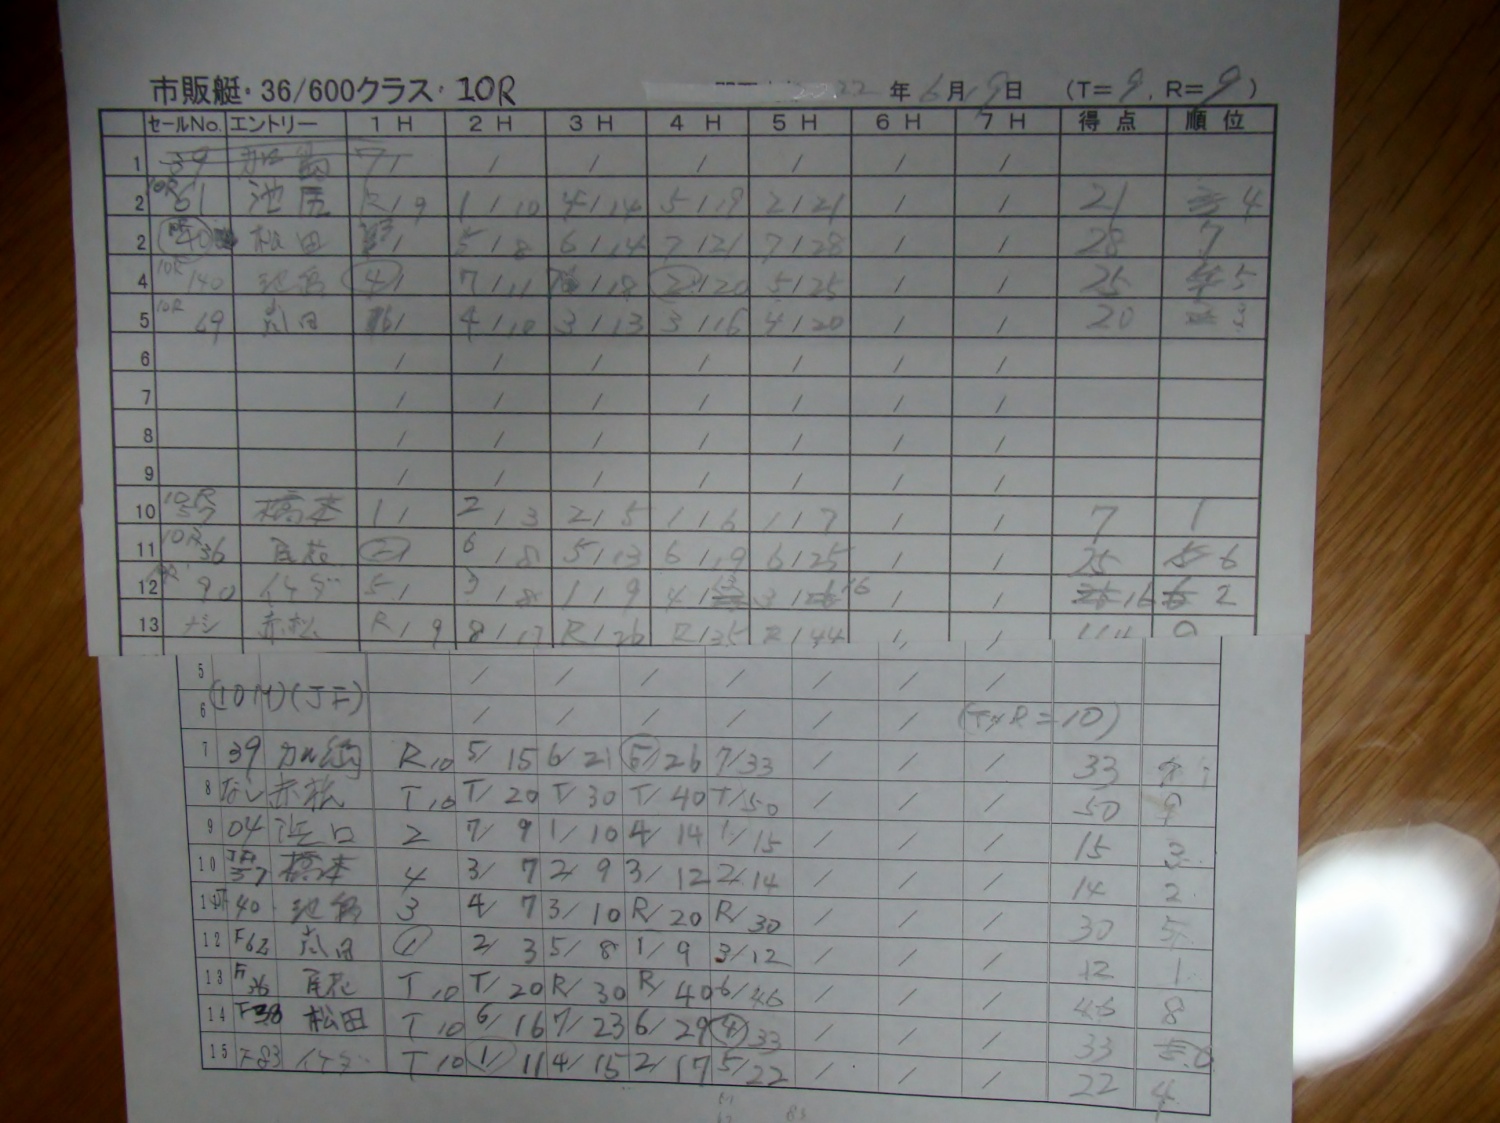 市販艇・36/600クラス・10R
22 年 6月 9日 (T=9, R=9)
セールNo. エントリー 1H 2H 3H 4H 5H 6H 7H 得点 順位
1 39 7/ / / / / / /
2 10R 61 池尻 R/9 1/10 4/14 5/19 2/21 / / 21 4
2 40 松田 / 5/8 6/14 7/21 7/28 / / 28 7
4 10R 140 4/ 7/11 /18 2/20 5/25 / / 25 5
5 10R 69 6/ 4/10 3/13 3/16 4/20 / / 20 3
6 / / / / / / /
7 / / / / / / /
8 / / / / / / /
9 / / / / / / /
10 10R 57 橋本 1/ 2/3 2/5 1/6 1/7 / / 7 1
11 10R 36 尾花 2/ 6/8 5/13 6/19 6/25 / / 25 6
12 90 イケダ 5/ 3/8 1/9 4/13 3/16 / / 16 2
13 ナシ 赤松 R/9 8/17 R/26 R/35 R/44 / / 9
5 / / / / / / /
6 (10M)(JF) / / / / / / (T,R=10)
7 39 R10 5/15 6/21 5/26 7/33 / / / 33
8 なし 赤松 T10 T/20 T/30 T/40 T/50 / / / 50 9
9 04 浜口 2 7/9 1/10 4/14 1/15 / / / 15 3
10 57 橋本 4 3/7 2/9 3/12 2/14 / / / 14 2
11 40 3 4/7 3/10 R/20 R/30 / / / 30 5
12 F62 1 2/3 5/8 1/9 3/12 / / / 12 1
13 36 尾花 T10 T/20 R/30 R/40 6/46 / / / 46 8
14 F38 松田 T10 6/16 7/23 6/29 4/33 / / / 33
15 F83 イケダ T10 1/11 4/15 2/17 5/22 / / / 22 4